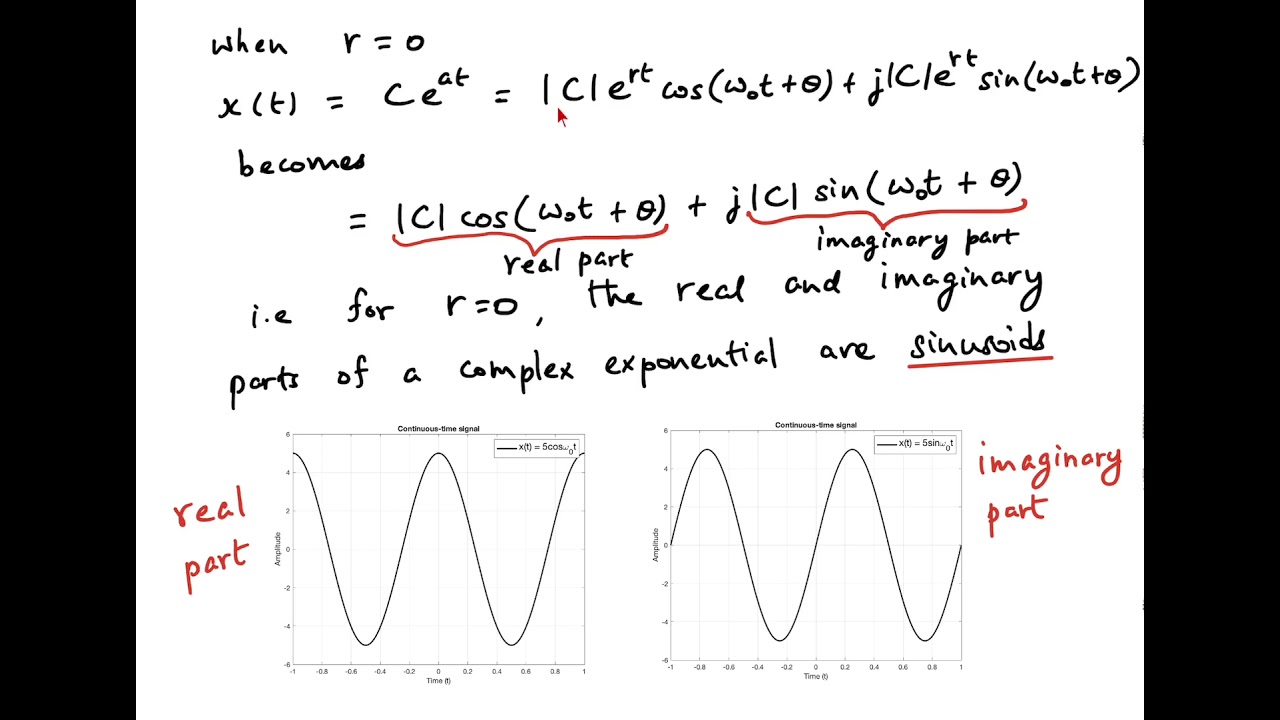 when r = 0
x(t) = Ce^{at} = |C|e^{rt} cos(ω₀t + θ) + j|C|e^{rt} sin(ω₀t + θ)
becomes
= |C| cos(ω₀t + θ) + j|C| sin(ω₀t + θ)
real part
imaginary part
i.e for r=0, the real and imaginary
parts of a complex exponential are sinusoids
real
part
Continuous-time signal
x(t) = 5cosω₀t
Amplitude
6
4
2
0
-2
-4
-6
-1 -0.8 -0.6 -0.4 -0.2 0 0.2 0.4 0.6 0.8 1
Time (t)
Continuous-time signal
x(t) = 5sinω₀t
Amplitude
6
4
2
0
-2
-4
-6
-1 -0.8 -0.6 -0.4 -0.2 0 0.2 0.4 0.6 0.8 1
Time (t)
imaginary
part